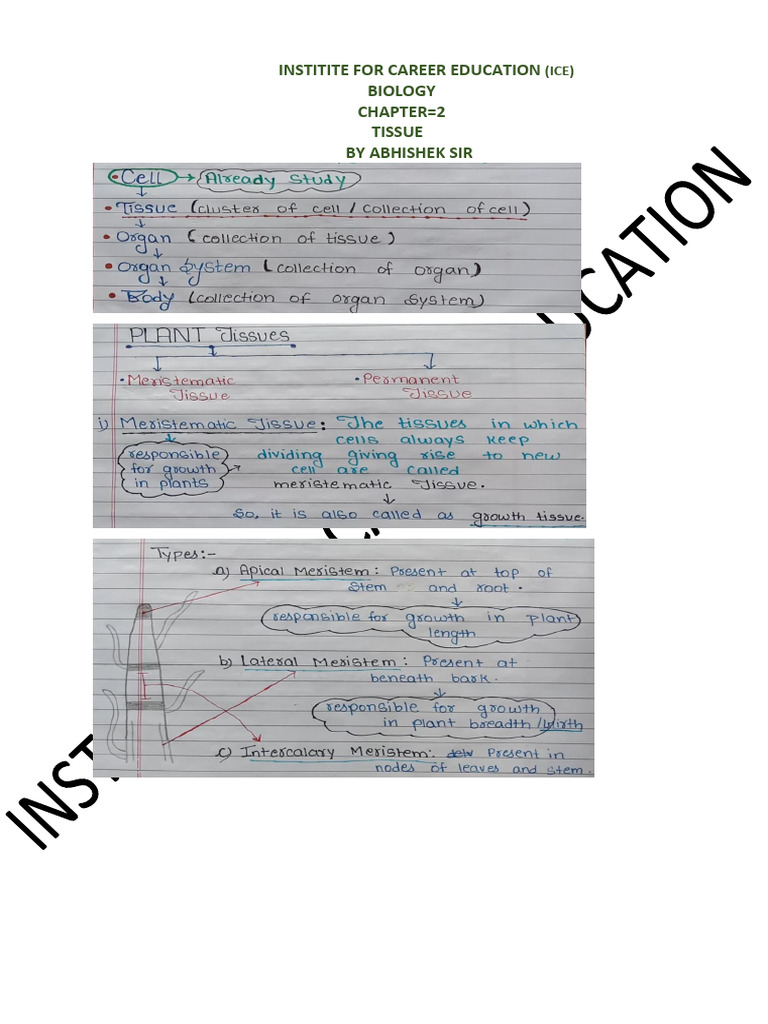 INSTITITE FOR CAREER EDUCATION (ICE)
BIOLOGY
CHAPTER=2
TISSUE
BY ABHISHEK SIR
• Cell → Already Study
• Tissue (cluster of cell / Collection of cell)
• Organ (collection of tissue)
• Organ System (collection of organ)
• Body (collection of organ System)
PLANT Tissues
• Meristematic Tissue
• Permanent Tissue
i) Meristematic Tissue: The tissues in which
cells always keep
dividing giving rise to new
cell are called
meristematic Tissue.
responsible
for growth
in plants
So, it is also called as growth tissue.
Types:-
a) Apical Meristem: Present at top of
stem and root.
responsible for growth in plant
length
b) Lateral Meristem: Present at
beneath bark.
responsible for growth
in plant breadth/
c) Intercalary Meristem: Present in
nodes of leaves and stem.